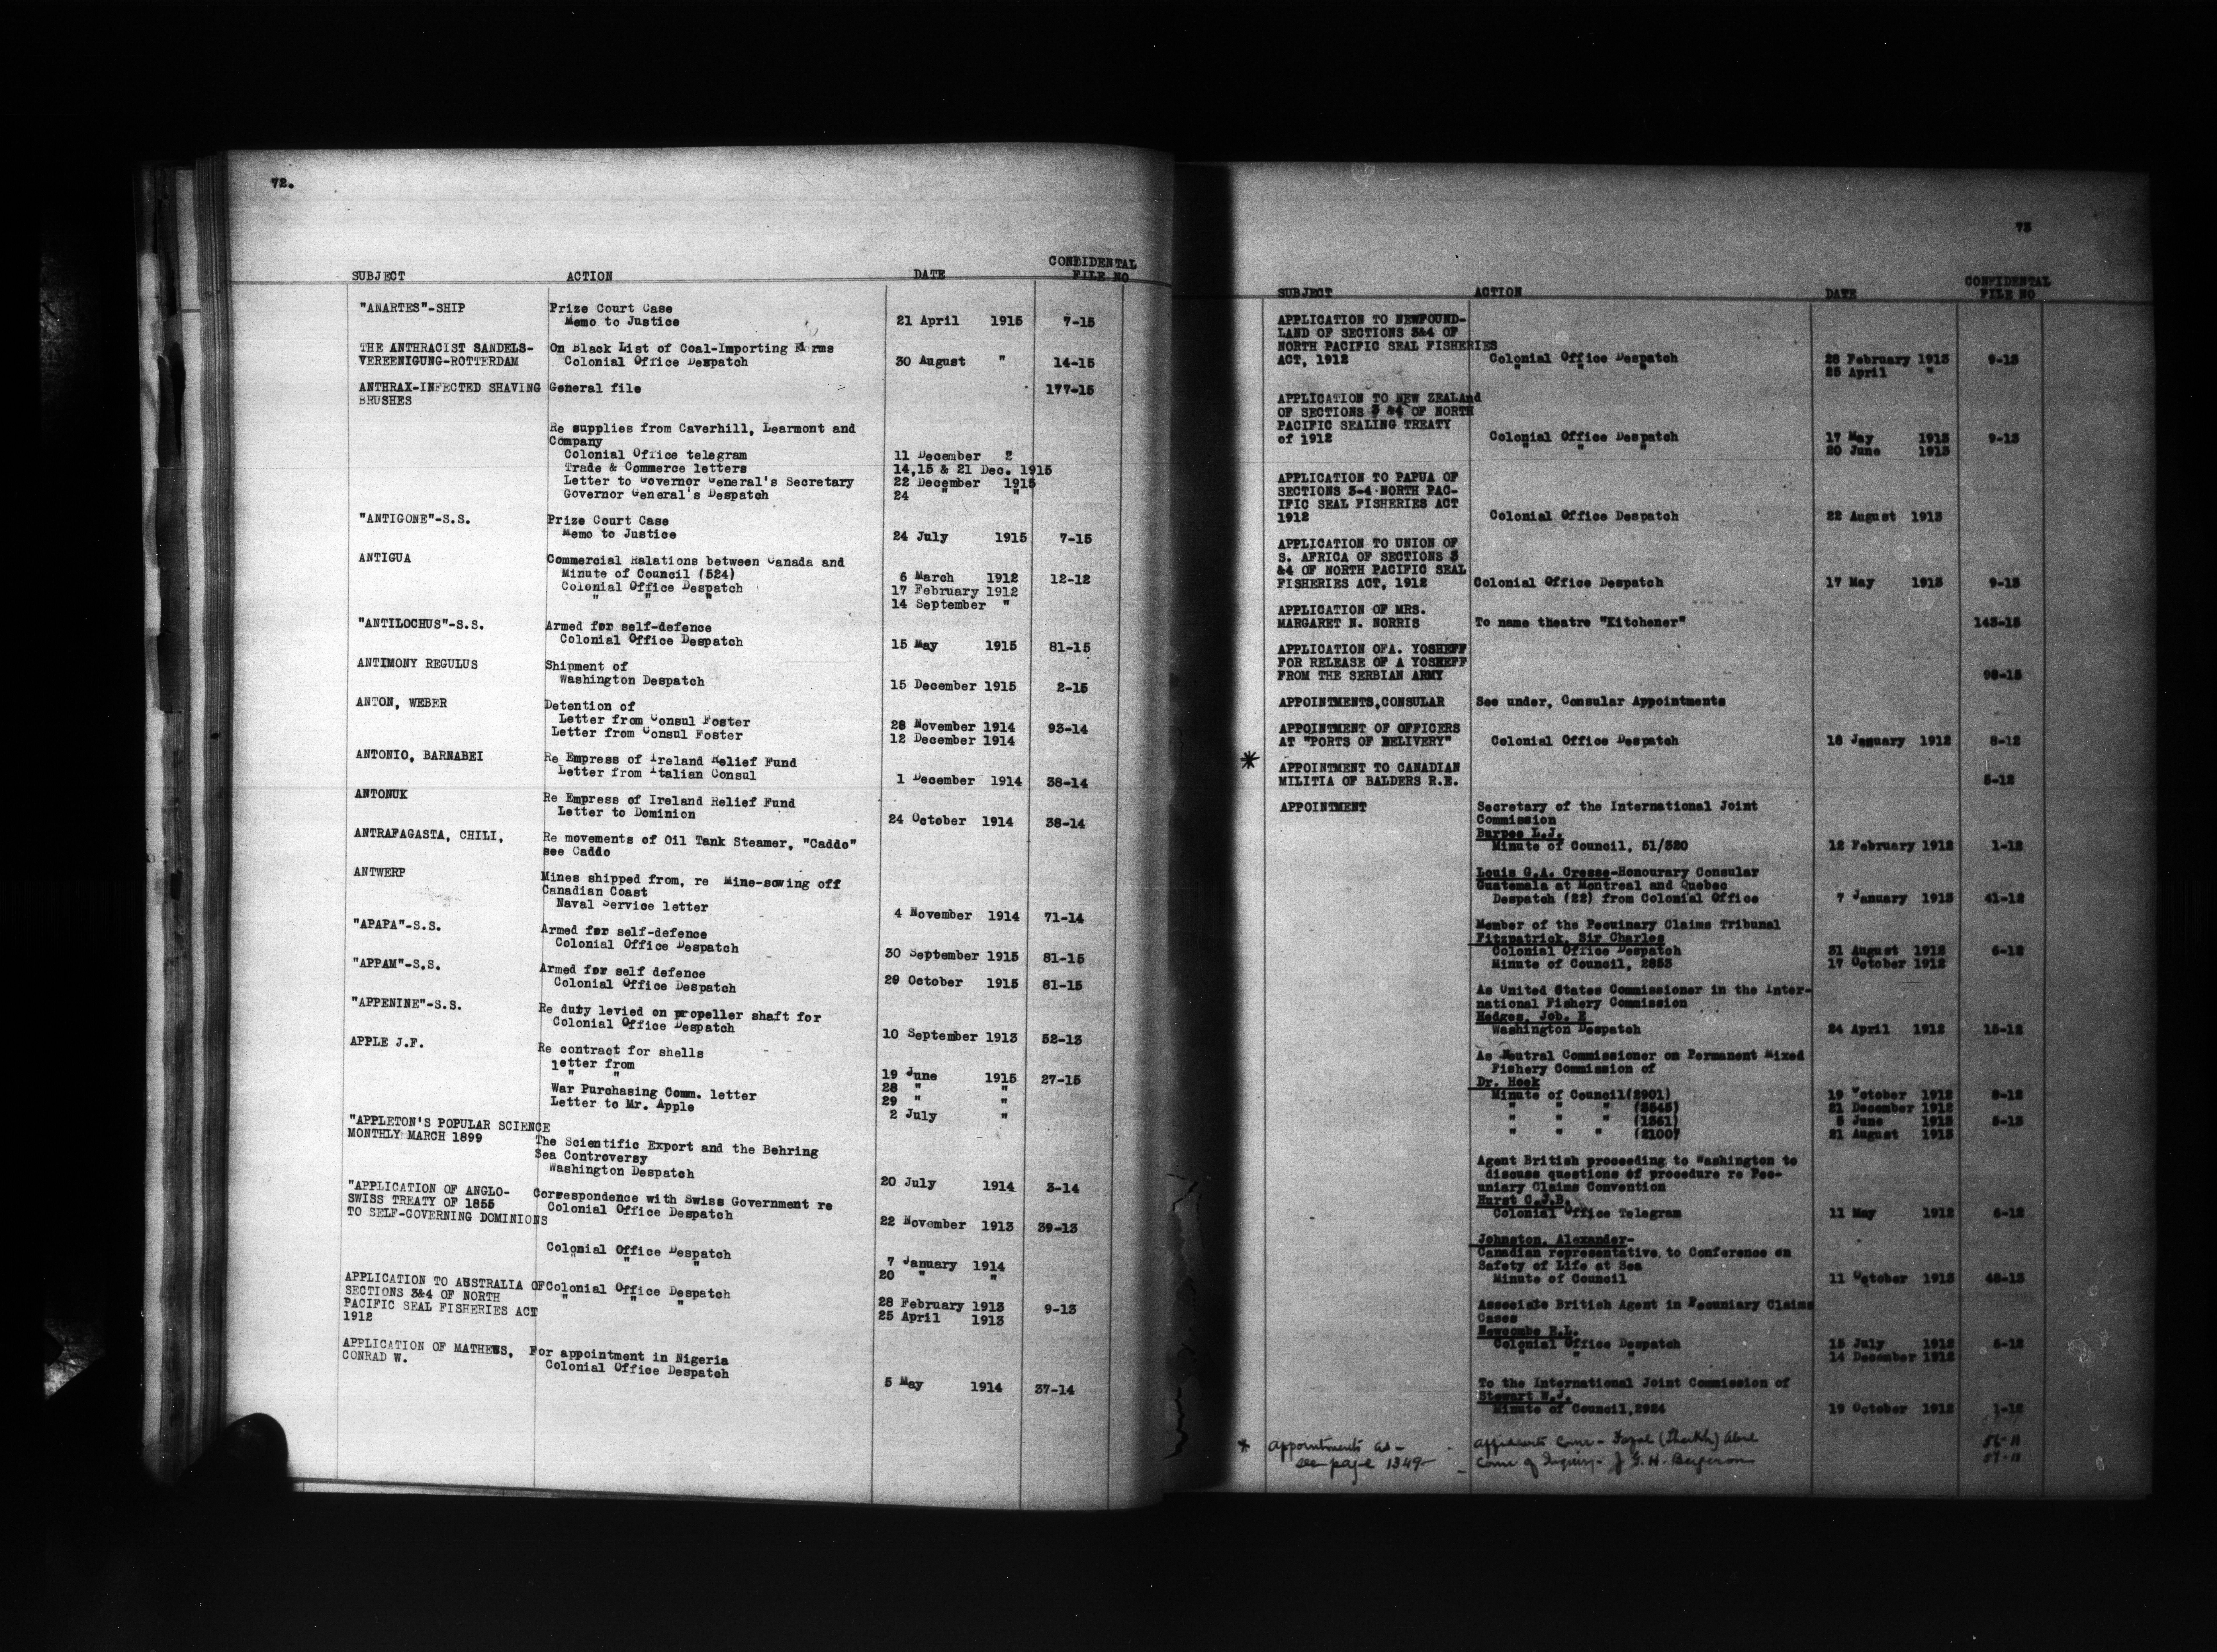 72.
SUBJECT ACTION DATE CONFIDENTAL FILE NO
"ANARTES"-SHIP Prize Court Case
Memo to Justice 21 April 1915 7-15
THE ANTHRACIST SANDELS- On Black List of Coal-Importing Firms
VEREENIGUNG-ROTTERDAM Colonial Office Despatch 30 August " 14-15
ANTHRAX-INFECTED SHAVING General file 177-15
BRUSHES
Re supplies from Caverhill, Learmont and
Company
Colonial Office telegram 11 December "
Trade & Commerce letters 14,15 & 21 Dec. 1915
Letter to Governor General's Secretary 22 December 1915
Governor General's Despatch 24 " "
"ANTIGONE"-S.S. Prize Court Case
Memo to Justice 24 July 1915 7-15
ANTIGUA Commercial Ralations between Canada and
Minute of Council (524) 6 March 1912 12-12
Colonial Office Despatch 17 February 1912
" " " 14 September "
"ANTILOCHUS"-S.S. Armed for self-defence
Colonial Office Despatch 15 May 1915 81-15
ANTIMONY REGULUS Shipment of
Washington Despatch 15 December 1915 2-15
ANTON, WEBER Detention of
Letter from Consul Foster 28 November 1914 93-14
Letter from Consul Foster 12 December 1914
ANTONIO, BARNABEI Re Empress of Ireland Relief Fund
Letter from Italian Consul 1 December 1914 38-14
ANTONUK Re Empress of Ireland Relief Fund
Letter to Dominion 24 October 1914 38-14
ANTRAFAGASTA, CHILI, Re movements of Oil Tank Steamer, "Caddo"
see Caddo
ANTWERP Mines shipped from, re Mine-sowing off
Canadian Coast
Naval Service letter 4 November 1914 71-14
"APAPA"-S.S. Armed for self-defence
Colonial Office Despatch 30 September 1915 81-15
"APPAM"-S.S. Armed for self defence
Colonial Office Despatch 29 October 1915 81-15
"APPENINE"-S.S. Re duty levied on propeller shaft for
Colonial Office Despatch 10 September 1913 52-13
APPLE J.F. Re contract for shells
letter from 19 June 1915 27-15
" " 28 " "
War Purchasing Comm. letter 29 " "
Letter to Mr. Apple 2 July "
"APPLETON'S POPULAR SCIENCE
MONTHLY MARCH 1899 The Scientific Export and the Behring
Sea Controversy
Washington Despatch 20 July 1914 3-14
"APPLICATION OF ANGLO- Correspondence with Swiss Government re
SWISS TREATY OF 1855 Colonial Office Despatch
TO SELF-GOVERNING DOMINIONS 22 November 1913 39-13
Colonial Office Despatch 7 January 1914
" " " 20 " "
APPLICATION TO AUSTRALIA OF Colonial Office Despatch
SECTIONS 3&4 OF NORTH " " " 28 February 1913 9-13
PACIFIC SEAL FISHERIES ACT 25 April 1913
1912
APPLICATION OF MATHEWS, For appointment in Nigeria
CONRAD W. Colonial Office Despatch 5 May 1914 37-14
73
SUBJECT ACTION DATE CONFIDENTAL FILE NO
APPLICATION TO NEWFOUND-
LAND OF SECTIONS 3&4 OF
NORTH PACIFIC SEAL FISHERIES
ACT, 1912 Colonial Office Despatch 28 February 1913 9-13
" " " 25 April "
APPLICATION TO NEW ZEALAnd
OF SECTIONS 3 &4 OF NORTH
PACIFIC SEALING TREATY
of 1912 Colonial Office Despatch 17 May 1913 9-13
" " " 20 June 1913
APPLICATION TO PAPUA OF
SECTIONS 3-4 NORTH PAC-
IFIC SEAL FISHERIES ACT
1912 Colonial Office Despatch 22 August 1913
APPLICATION TO UNION OF
S. AFRICA OF SECTIONS 3
&4 OF NORTH PACIFIC SEAL
FISHERIES ACT, 1912 Colonial Office Despatch 17 May 1913 9-13
APPLICATION OF MRS.
MARGARET N. NORRIS To name theatre "Kitchener" 143-15
APPLICATION OFA. YOSHEFF
FOR RELEASE OF A YOSHEFF
FROM THE SERBIAN ARMY 98-15
APPOINTMENTS,CONSULAR See under, Consular Appointments
APPOINTMENT OF OFFICERS
AT "PORTS OF DELIVERY" Colonial Office Despatch 18 January 1912 8-12
* APPOINTMENT TO CANADIAN
MILITIA OF BALDERS R.E. 5-12
APPOINTMENT Secretary of the International Joint
Commission
Burpee L.J.
Minute of Council, 51/320 12 February 1912 1-12
Louis G.A. Cresse-Honourary Consular
Guatemala at Montreal and Quebec
Despatch (22) from Colonial Office 7 January 1913 41-12
Member of the Pecuinary Claims Tribunal
Fitzpatrick, Sir Charles
Colonial Office Despatch 31 August 1912 6-12
Minute of Council, 2853 17 October 1912
As United States Commissioner in the Inter-
national Fishery Commission
Hedges, Job. E
Washington Despatch 24 April 1912 15-12
As Neutral Commissioner on Permanent Mixed
Fishery Commission of
Dr. Hoek
Minute of Council(2901) 19 October 1912 8-12
" " " (3545) 21 December 1912
" " " (1361) 5 June 1913 5-13
" " " (2100) 21 August 1913
Agent British proceeding to Washington to
discuss questions of procedure re Pec-
uniary Claims Convention
Hurst C.J.B.
Colonial Office Telegram 11 May 1912 6-12
Johnston, Alexander-
Canadian representative to Conference on
Safety of Life at Sea
Minute of Council 11 October 1913 48-13
Associate British Agent in Pecuniary Claims
Cases
Newcombe E.L.
Colonial Office Despatch 15 July 1912 6-12
" " " 14 December 1912
To the International Joint Commission of
Stewart W.J.
Minute of Council,2924 19 October 1912 1-12
* appointments as - affidavits Comr - (Sheikh) 56-11
see page 1349 - Comr of Inquiry - J G. H. Bergeron 57-11